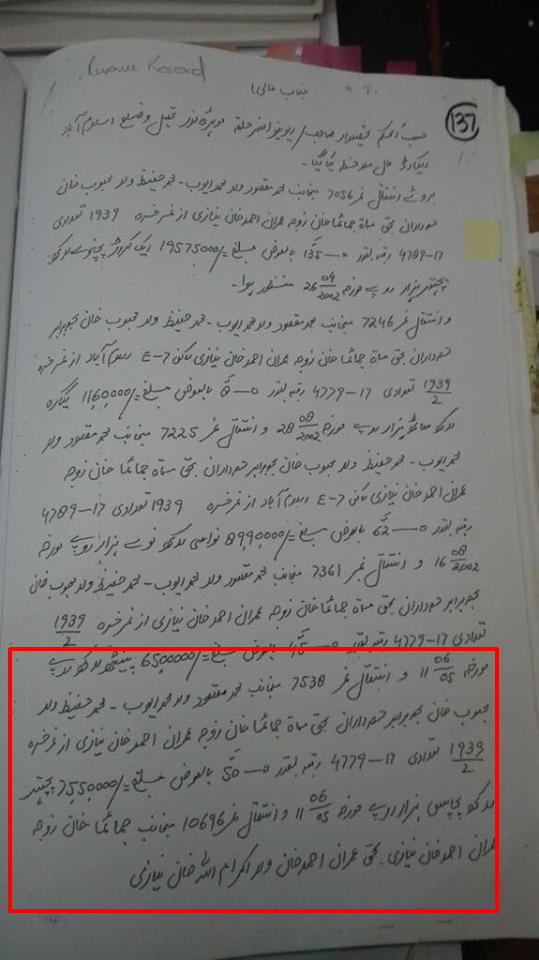 Revenue Record
جناب عالی!
137
حسب الحکم تحصیلدار صاحب ریونیو افسر حلقہ موہڑہ نور تحصیل و ضلع اسلام آباد
ریکارڈ مال ملاحظہ کیا گیا۔
بروئے انتقال نمبر 7056 منجانب محمد مقصود ولد محمد ایوب۔ محمد حفیظ ولد محبوب خان
حصہ داران بحق مسماۃ جمائما خان زوجہ عمران احمد خان نیازی از نمبر خسرہ 1939 تعدادی
4789-17 رقبہ بقدر بالعوض مبلغ 19575000/= ایک کروڑ پچانوے لاکھ
پچھتر ہزار روپے مورخہ 26 04/2002 منظور ہوا۔
و انتقال نمبر 7246 منجانب محمد مقصود ولد محمد ایوب۔ محمد حفیظ ولد محبوب خان بحصہ برابر
حصہ داران بحق مسماۃ جمائما خان زوجہ عمران احمد خان نیازی ساکن E-7 اسلام آباد از نمبر خسرہ
1939/2 تعدادی 4779-17 رقبہ بقدر بالعوض مبلغ 11,60,000/= گیارہ
لاکھ ساٹھ ہزار روپے مورخہ 28 08/2002 و انتقال نمبر 7225 منجانب محمد مقصود ولد
محمد ایوب۔ محمد حفیظ ولد محبوب خان بحصہ برابر حصہ داران بحق مسماۃ جمائما خان زوجہ
عمران احمد خان نیازی ساکن E-7 اسلام آباد از نمبر خسرہ 1939 تعدادی 4789-17
رقبہ بقدر بالعوض مبلغ 89,90,000/= نواسی لاکھ نوے ہزار روپے مورخہ
16 08/2002 و انتقال نمبر 7361 منجانب محمد مقصود ولد محمد ایوب۔ محمد حفیظ ولد محبوب خان
بحصہ برابر حصہ داران بحق مسماۃ جمائما خان زوجہ عمران احمد خان نیازی از نمبر خسرہ 1939/2
تعدادی 4779-17 رقبہ بقدر بالعوض مبلغ 6500000/= پینسٹھ لاکھ روپے
مورخہ 11 06/05 و انتقال نمبر 7538 منجانب محمد مقصود ولد محمد ایوب۔ محمد حفیظ ولد
محبوب خان بحصہ برابر حصہ داران بحق مسماۃ جمائما خان زوجہ عمران احمد خان نیازی از نمبر خسرہ
1939/2 تعدادی 4779-17 رقبہ بقدر بالعوض مبلغ 75,50,000/= پچھتر
لاکھ پچاس ہزار روپے مورخہ 11 06/05 و انتقال نمبر 10696 منجانب جمائما خان زوجہ
عمران احمد خان نیازی۔ بحق عمران احمد خان ولد اکرام اللہ خان نیازی